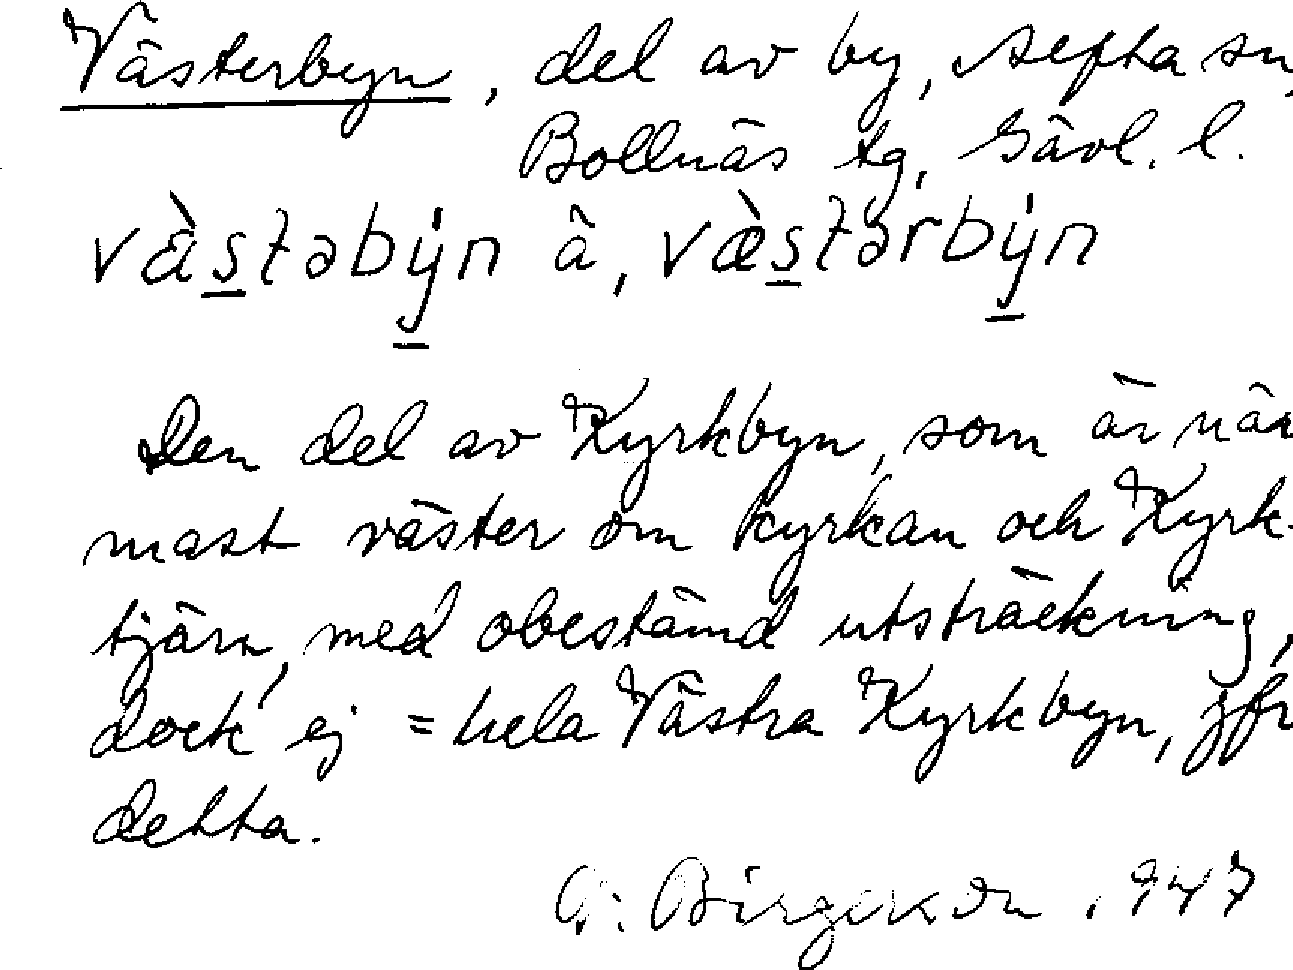 Västerbyn, del av by, Alfta sn,
Bollnäs tg, Gävl. l.
väs̲təby̲n å, væs̲tərby̲n
Den del av Kyrkbyn, som är när
mast väster om kyrkan och Kyrk-
tjärn, med obestämd utsträckning,
dock ej = hela Västra Kyrkbyn, jfr
detta.
G. Birgerson. 1947